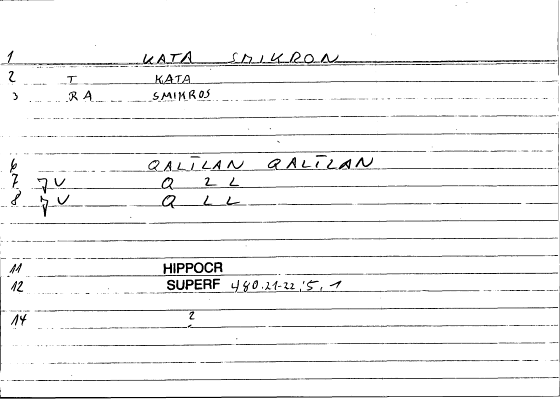 1 KATA SMIKRON
2 T KATA
3 RA SMIKROS
6 QALĪLAN QALĪLAN
7 V Q L L
8 V Q L L
11 HIPPOCR
12 SUPERF 480.21-22,5,1
14 2